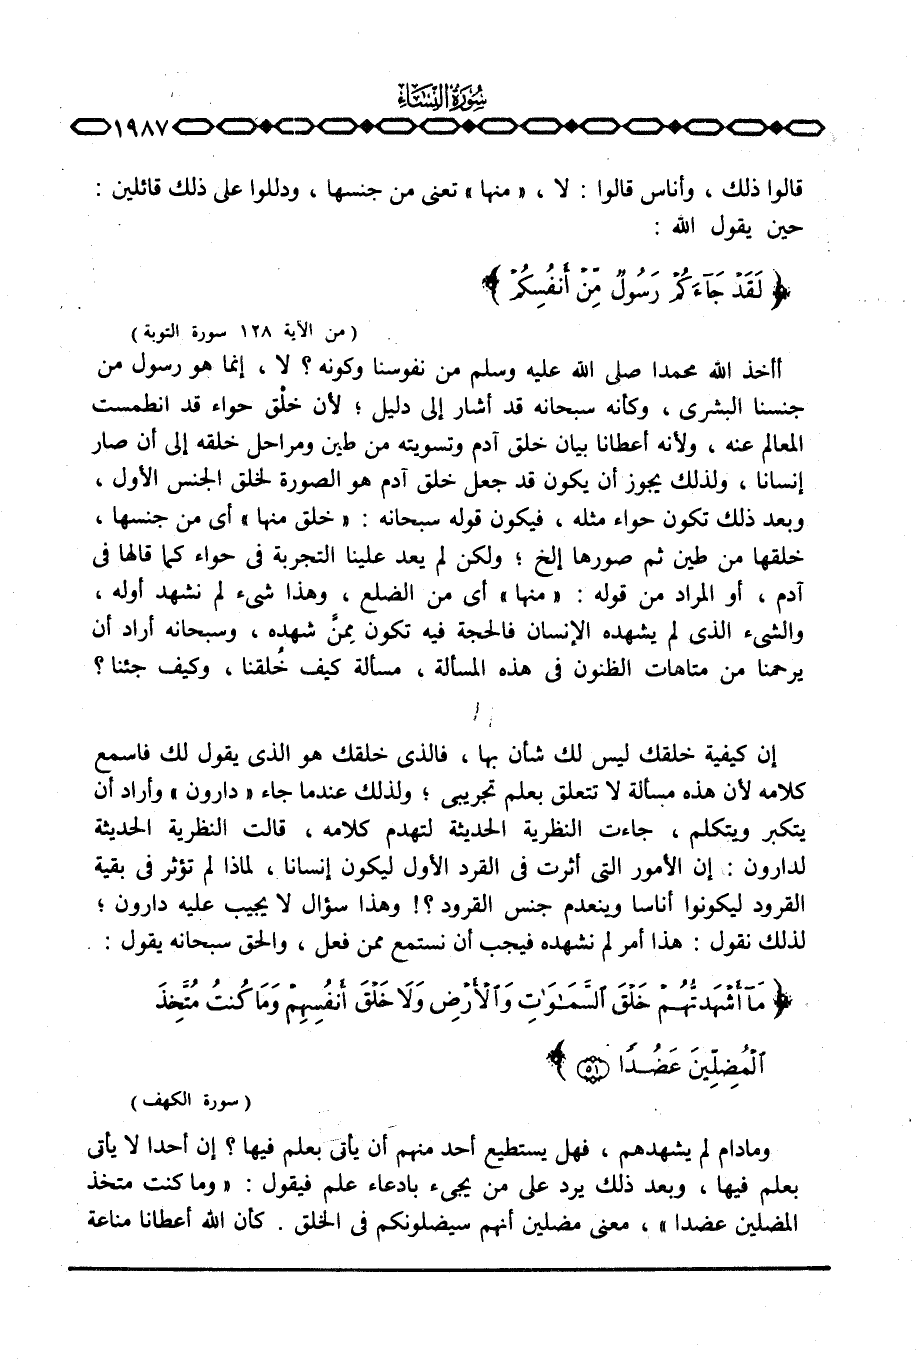 سُورَةُ النِّسَاءِ
١٩٨٧
قالوا ذلك ، وأناس قالوا : لا ، « منها » تعنى من جنسها ، ودللوا على ذلك قائلين :
حين يقول الله :
﴿ لَقَدْ جَآءَكُمْ رَسُولٌ مِّنْ أَنفُسِكُمْ ﴾
( من الآية ١٢٨ سورة التوبة )
أأخذ الله محمدا صلى الله عليه وسلم من نفوسنا وكونه ؟ لا ، إنما هو رسول من
جنسنا البشرى ، وكأنه سبحانه قد أشار إلى دليل ؛ لأن خلْق حواء قد انطمست
المعالم عنه ، ولأنه أعطانا بيان خلق آدم وتسويته من طين ومراحل خلقه إلى أن صار
إنسانا ، ولذلك يجوز أن يكون قد جعل خلق آدم هو الصورة لخلق الجنس الأول ،
وبعد ذلك تكون حواء مثله ، فيكون قوله سبحانه : « خلق منها » أى من جنسها ،
خلقها من طين ثم صورها إلخ ؛ ولكن لم يعد علينا التجربة فى حواء كما قالها فى
آدم ، أو المراد من قوله : « منها » أى من الضلع ، وهذا شىء لم نشهد أوله ،
والشىء الذى لم يشهده الإنسان فالحجة فيه تكون ممِنَّ شهده ، وسبحانه أراد أن
يرحمنا من متاهات الظنون فى هذه المسألة ، مسألة كيف خُلقنا ، وكيف جئنا ؟
إن كيفية خلقك ليس لك شأن بها ، فالذى خلقك هو الذى يقول لك فاسمع
كلامه لأن هذه مسألة لا تتعلق بعلم تجريبى ؛ ولذلك عندما جاء « دارون » وأراد أن
يتكبر ويتكلم ، جاءت النظرية الحديثة لتهدم كلامه ، قالت النظرية الحديثة
لدارون : إن الأمور التى أثرت فى القرد الأول ليكون إنسانا ، لماذا لم تؤثر فى بقية
القرود ليكونوا أناسا وينعدم جنس القرود ؟! وهذا سؤال لا يجيب عليه دارون ؛
لذلك نقول : هذا أمر لم نشهده فيجب أن نستمع ممن فعل ، والحق سبحانه يقول :
﴿ مَآ أَشْهَدتُّهُمْ خَلْقَ ٱلسَّمَـٰوَٰتِ وَٱلْأَرْضِ وَلَا خَلْقَ أَنفُسِهِمْ وَمَا كُنتُ مُتَّخِذَ
ٱلْمُضِلِّينَ عَضُدًا ٥١ ﴾
( سورة الكهف )
ومادام لم يشهدهم ، فهل يستطيع أحد منهم أن يأتى بعلم فيها ؟ إن أحدا لا يأتى
بعلم فيها ، وبعد ذلك يرد على من يجىء بادعاء علم فيقول : « وما كنت متخذ
المضلين عضدا » ، معنى مضلين أنهم سيضلونكم فى الخلق . كأن الله أعطانا مناعة